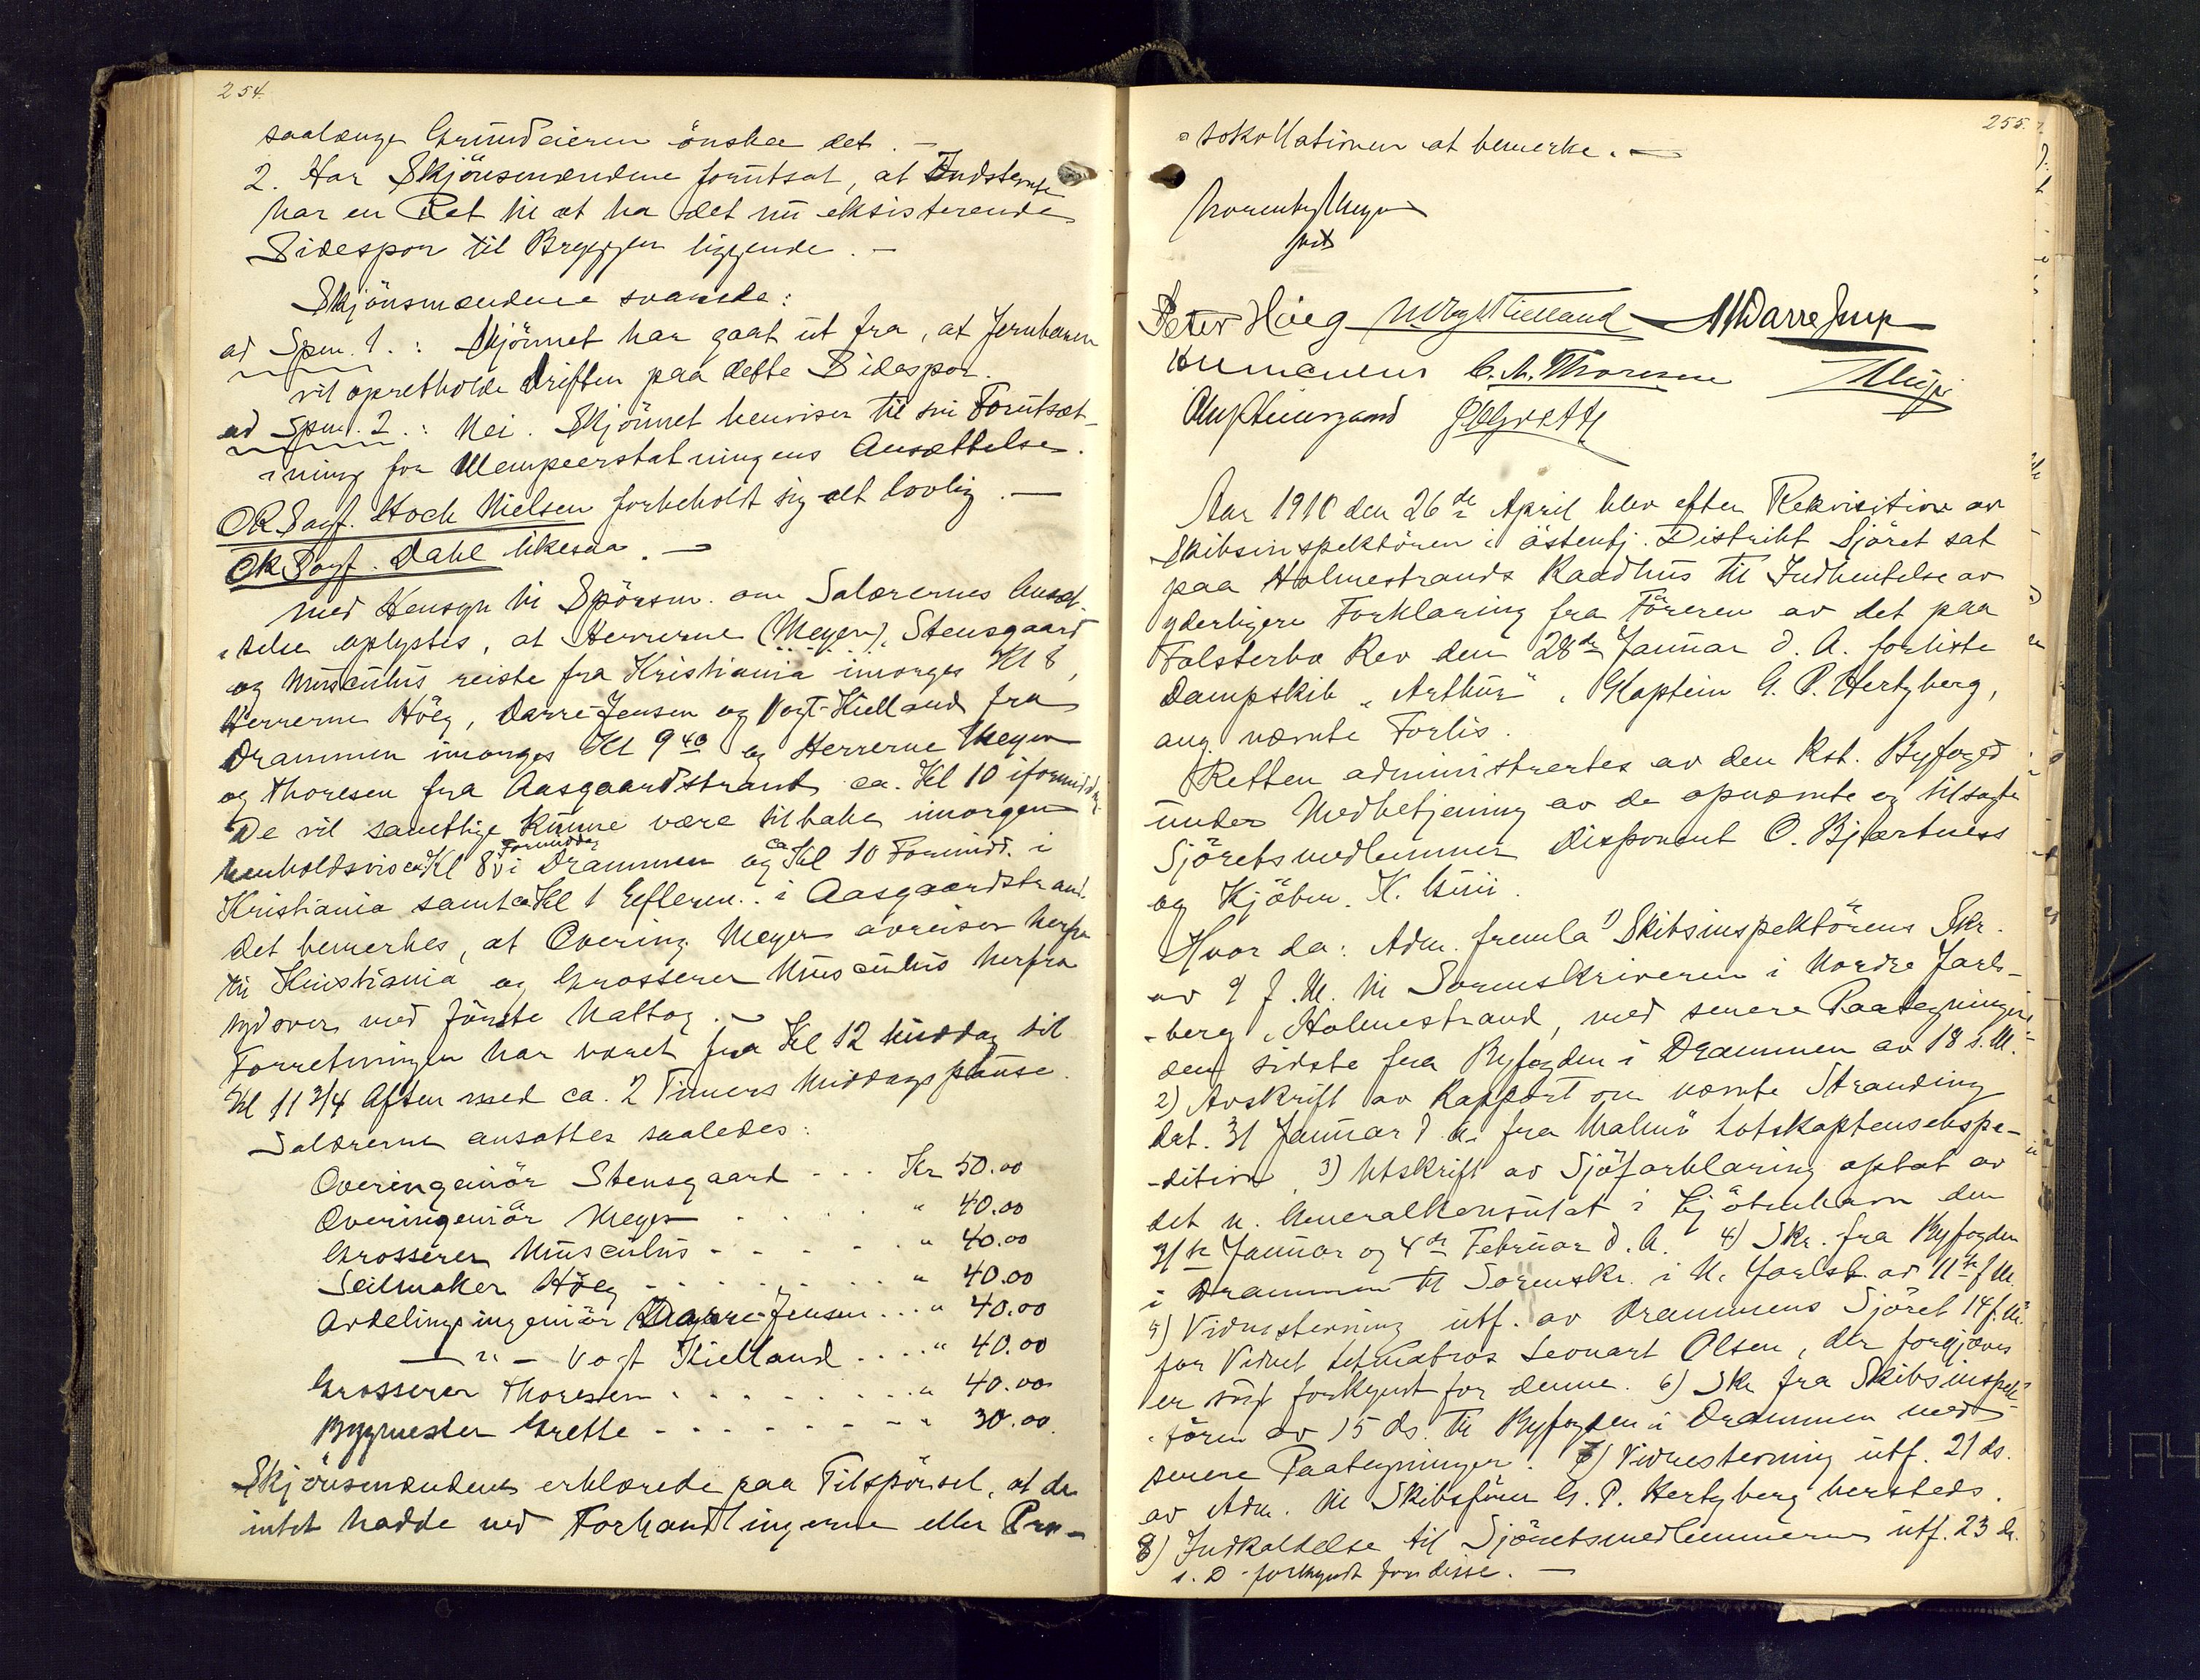 254.
saalænge Grundeieren önsker det. —
2. Har Skjönsmændene forutsat, at Indstevnte
har en Ret til at ha det nu eksisterende
Sidespor til Bryggen liggende. —
Skjönsmændene svarede:
ad Spm. 1.: Skjönnet har gaat ut fra, at Jernbanen
vil opretholde Driften paa dette Sidespor.
ad Spm. 2.: Nei. Skjönnet henviser til sin Forutsæt-
ning for Ulempeerstatningens Ansættelse.
OR Sagf. Hoch Nielsen forbeholdt sig alt lovlig. —
OR Sagf. Dahl likesaa. —
Med Hensyn til Spörsm. om Salærernes Ansæt-
telse oplystes, at Herrerne (Meyer), Stensgaard
og Musculus reiste fra Kristiania imorges Kl 8,
Herrerne Höeg, Darre-Jensen og Vogt-Kielland fra
Drammen imorges Kl 9 40 og Herrerne Meyer
og Thoresen fra Aasgaardstrand ca. Kl 10 iformidd.
De vil samtlige kunne være tilbake imorgen
henholdsvis ca Kl 8 Formiddag i Drammen og ca Kl 10 Formidd. i
Kristiania samt ca Kl 1 Efterm. i Aasgaardstrand.
Det bemerkes, at Overing. Meyer avreiser herfra
til Kristiania og Grosserer Musculus herfra
sydover med förste Nattog. —
Forretningen har varet fra Kl 12 Middag til
Kl 11 3/4 Aften med ca. 2 Timers Middagspause.
Salærerne ansattes saaledes:
Overingeniör Stensgaard - - - Kr 50.00
Overingeniör Meyer - - - - " 40.00
Grosserer Musculus - - - - - " 40.00
Seilmaker Höeg - - - - - - - " 40.00
Avdelingsingeniör Darre-Jensen ... " 40.00
— " — Vogt Kielland .... " 40.00
Grosserer Thoresen - - - - - - - " 40.00
Bygmester Grette - - - - - - - " 30.00.
Skjönsmændene erklærede paa Tilspörsel, at de
intet hadde ved Forhandlingerne eller Pro-
255.
tokollationen at bemerke. —
Peter Höeg Vogt Kielland Darre Jensen
Musculus C. M. Thoresen
Stensgaard Grette
Aar 1910 den 26de April blev efter Rekvisition av
Skibsinspektören i östenfj. Distrikt Sjöret sat
paa Holmestrands Raadhus til Indhentelse av
yderligere Forklaring fra Föreren av det paa
Falsterbo Rev den 28de Januar d. A. forliste
Dampskib „Arthur", Kaptein G. P. Hertzberg,
ang. nævnte Forlis.
Retten administrertes av den Kst. Byfoged
under Medbetjening av de opnævnte og tilsagte
Sjöretsmedlemmer Disponent O. Bjærtness
og Kjöbm. K. Gun.
Hvor da: Adm. fremla 1) Skibsinspektörens Skr.
av 9 f. M. til Sorenskriveren i Nordre Jarls-
berg, Holmestrand, med senere Paategninger,
den sidste fra Byfogden i Drammen av 18 s. M.
2) Avskrift av Rapport om nævnte Stranding
dat. 31 Januar d. A. fra Malmö Lotskaptensekspe-
dition, 3) Utskrift av Sjöforklaring optat av
det n. Generalkonsulat i Kjöbenhavn den
31te Januar og 4de Februar d. A. 4) Skr. fra Byfogden
i Drammen til Sorenskr. i N. Jarlsb. av 11te f M.
5) Vidnestevning utf. av Drammens Sjöret 14 f. M.
for Vidnet Letmatros Leonart Olsen, der forgjæves
er sögt forkyndt for denne. 6) Skr fra Skibsinspek-
tören av 15 ds. til Byfogden i Drammen med
senere Paategninger. 7) Vidnestevning utf. 21 ds.
av Adm. til Skibsförer G. P. Hertzberg hersteds.
8) Indkaldelse til Sjöretsmedlemmerne utf. 23 ds.
s. D forkyndt for disse. —